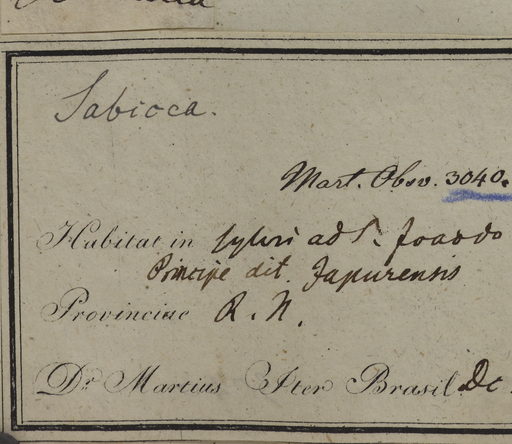 Sabioca.
Mart. Obsv. 3040.
Habitat in sylvis ad S. Joao do
Principe dit. Japurensis
Provinciae R. N.
Dr. Martius Iter Brasil. Dc.